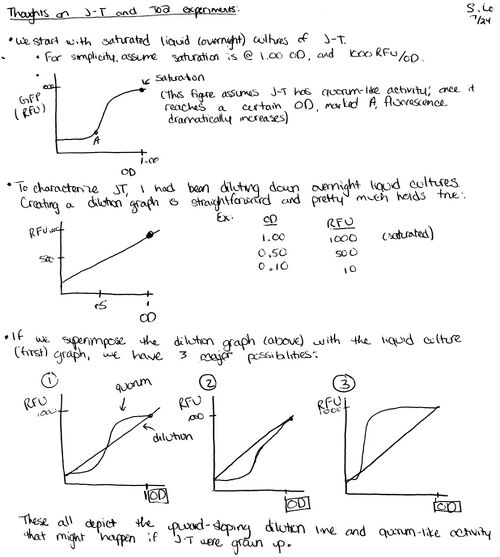 Thoughts on J-T and T02 experiments:
S. Lo
7/24
• We start with saturated liquid (overnight) cultures of J-T.
• For simplicity, assume saturation is @ 1.00 OD, and 1000 RFU/OD.
saturation
GFP
(RFU)
(This figure assumes J-T has quorum-like activity; once it
reaches a certain OD, marked A, fluorescence
dramatically increases)
A
1.00
OD
• To characterize JT, I had been diluting down overnight liquid cultures.
Creating a dilution graph is straightforward and pretty much holds true:
Ex: OD RFU
1.00 1000 (saturated)
0.50 500
0.10 10
RFU 1000
500
.5 1
OD
• If we superimpose the dilution graph (above) with the liquid culture
(first) graph, we have 3 major possibilities:
① quorum
RFU
1000
dilution
1 OD
②
RFU
1000
OD
③
RFU
1000
OD
These all depict the upward-sloping dilution line and quorum-like activity
that might happen if J-T were grown up.